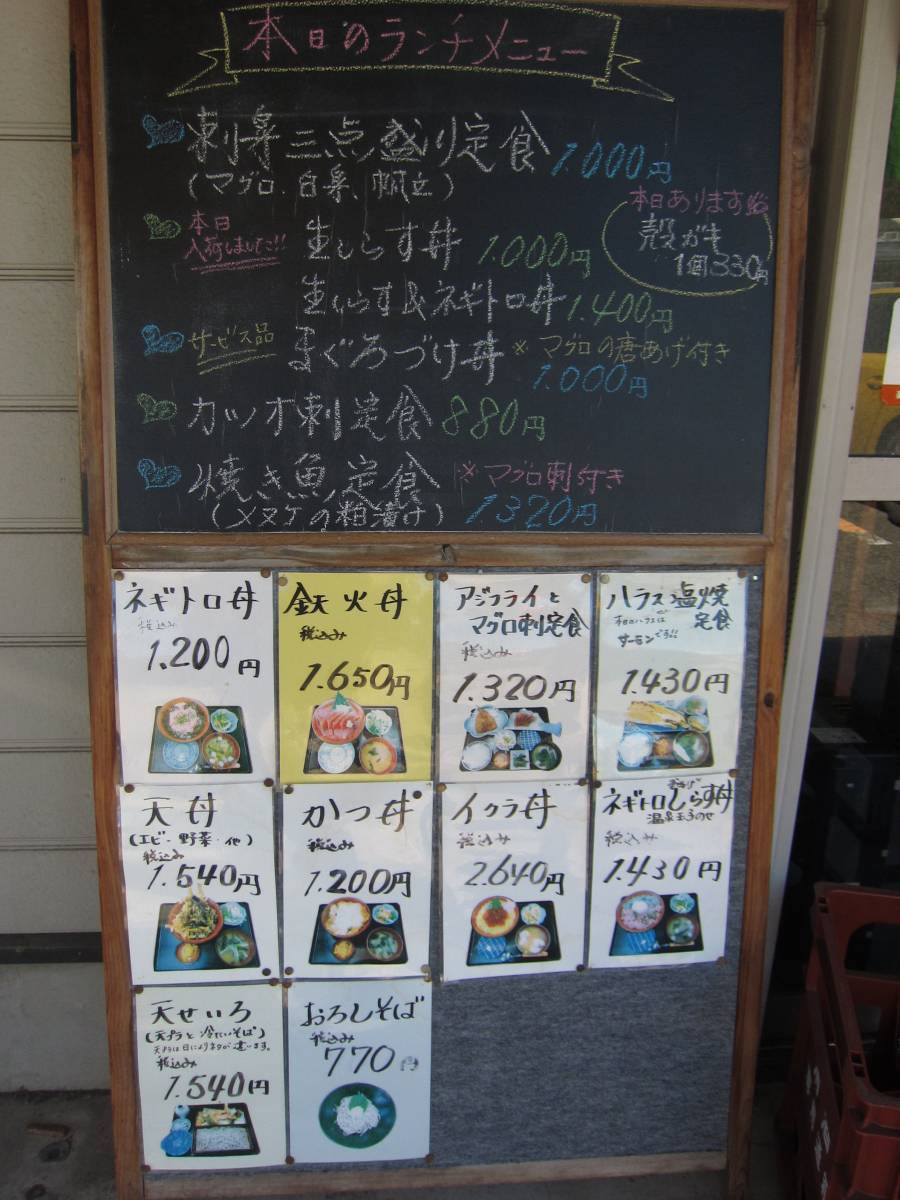 本日のランチメニュー
刺身三点盛り定食 1.000円
(マグロ、白身、帆立)
本日あります
殻ガキ
1個330円
本日
入荷しました!!
生しらす丼 1.000円
生しらす&ネギトロ丼 1.400円
サービス品 まぐろづけ丼 ※マグロの唐あげ付き
1.000円
カツオ刺定食 880円
焼き魚定食 ※マグロ刺付き
(メヌケの粕漬け) 1.320円
ネギトロ丼
税込み
1.200円
鉄火丼
税込み
1.650円
アジフライと
マグロ刺定食
税込み
1.320円
ハラス塩焼
定食
本日のハラスは
サーモンです!!
1.430円
天丼
(エビ・野菜・他)
税込み
1.540円
かつ丼
税込み
1.200円
イクラ丼
税込み
2.640円
ネギトロしらす丼
温泉玉子のせ
税込み
1.430円
天せいろ
(天プラと冷たいそば)
天プラは日によりネタが違います。
税込み
1.540円
おろしそば
税込み
770円